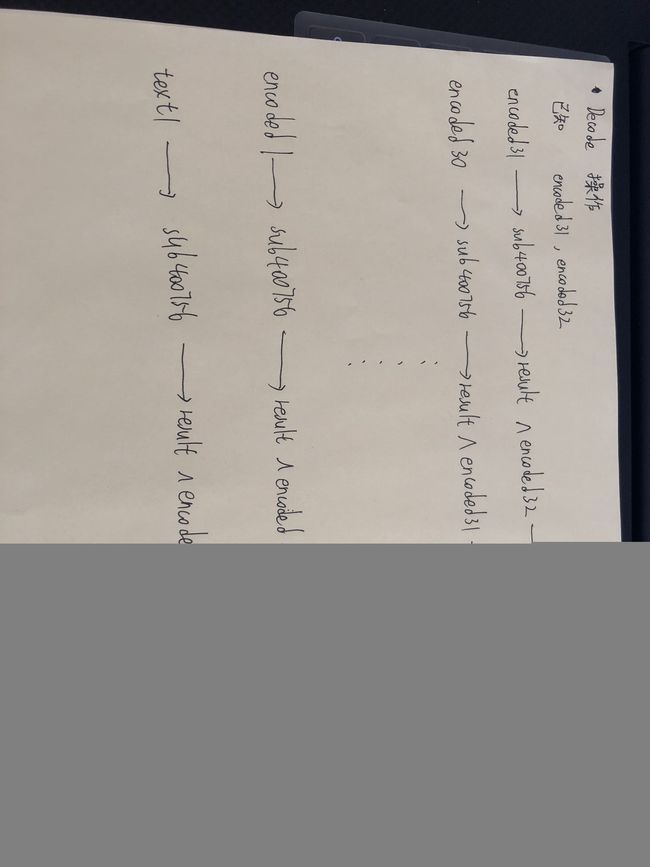 • Decode 操作
已知 encoded31, encoded32
encoded31 → sub400756 → result ∧ encoded32 —
encoded30 → sub400756 → result ∧ encoded31 -
. . . . .
encoded1 → sub400756 → result ∧ encoded
text1 → sub400756 → result ∧ encode